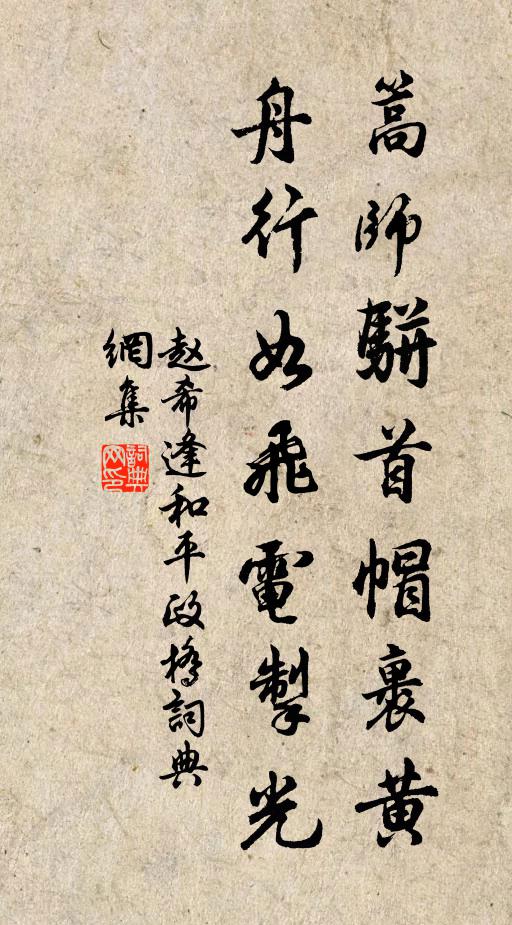 篙師駢首帽裹黃
舟行如飛電掣光
赵希逢和平政橋詞典
網集
詞典
网印